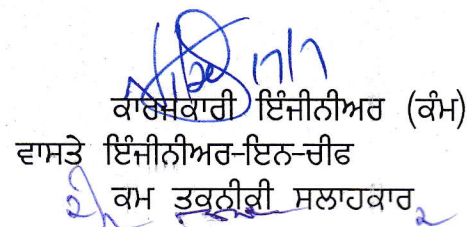 17/7
ਕਾਰਜਕਾਰੀ ਇੰਜੀਨੀਅਰ (ਕੰਮ)
ਵਾਸਤੇ ਇੰਜੀਨੀਅਰ-ਇਨ-ਚੀਫ
ਕਮ ਤਕਨੀਕੀ ਸਲਾਹਕਾਰ